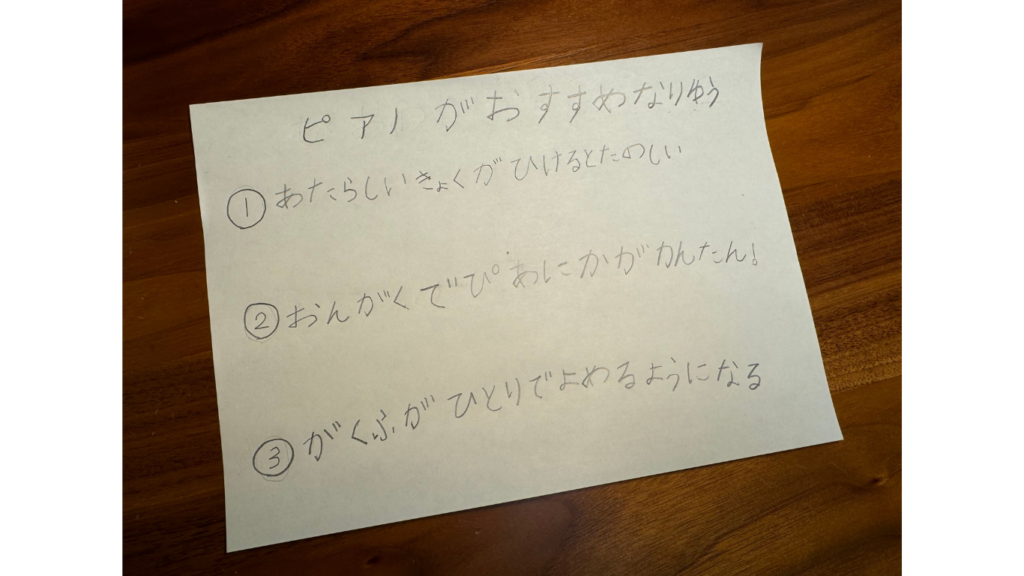 ピアノがおすすめなりゆう
①あたらしいきょくがひけるとたのしい
②おんがくでぴあにかがかんたん!
③がくふがひとりでよめるようになる